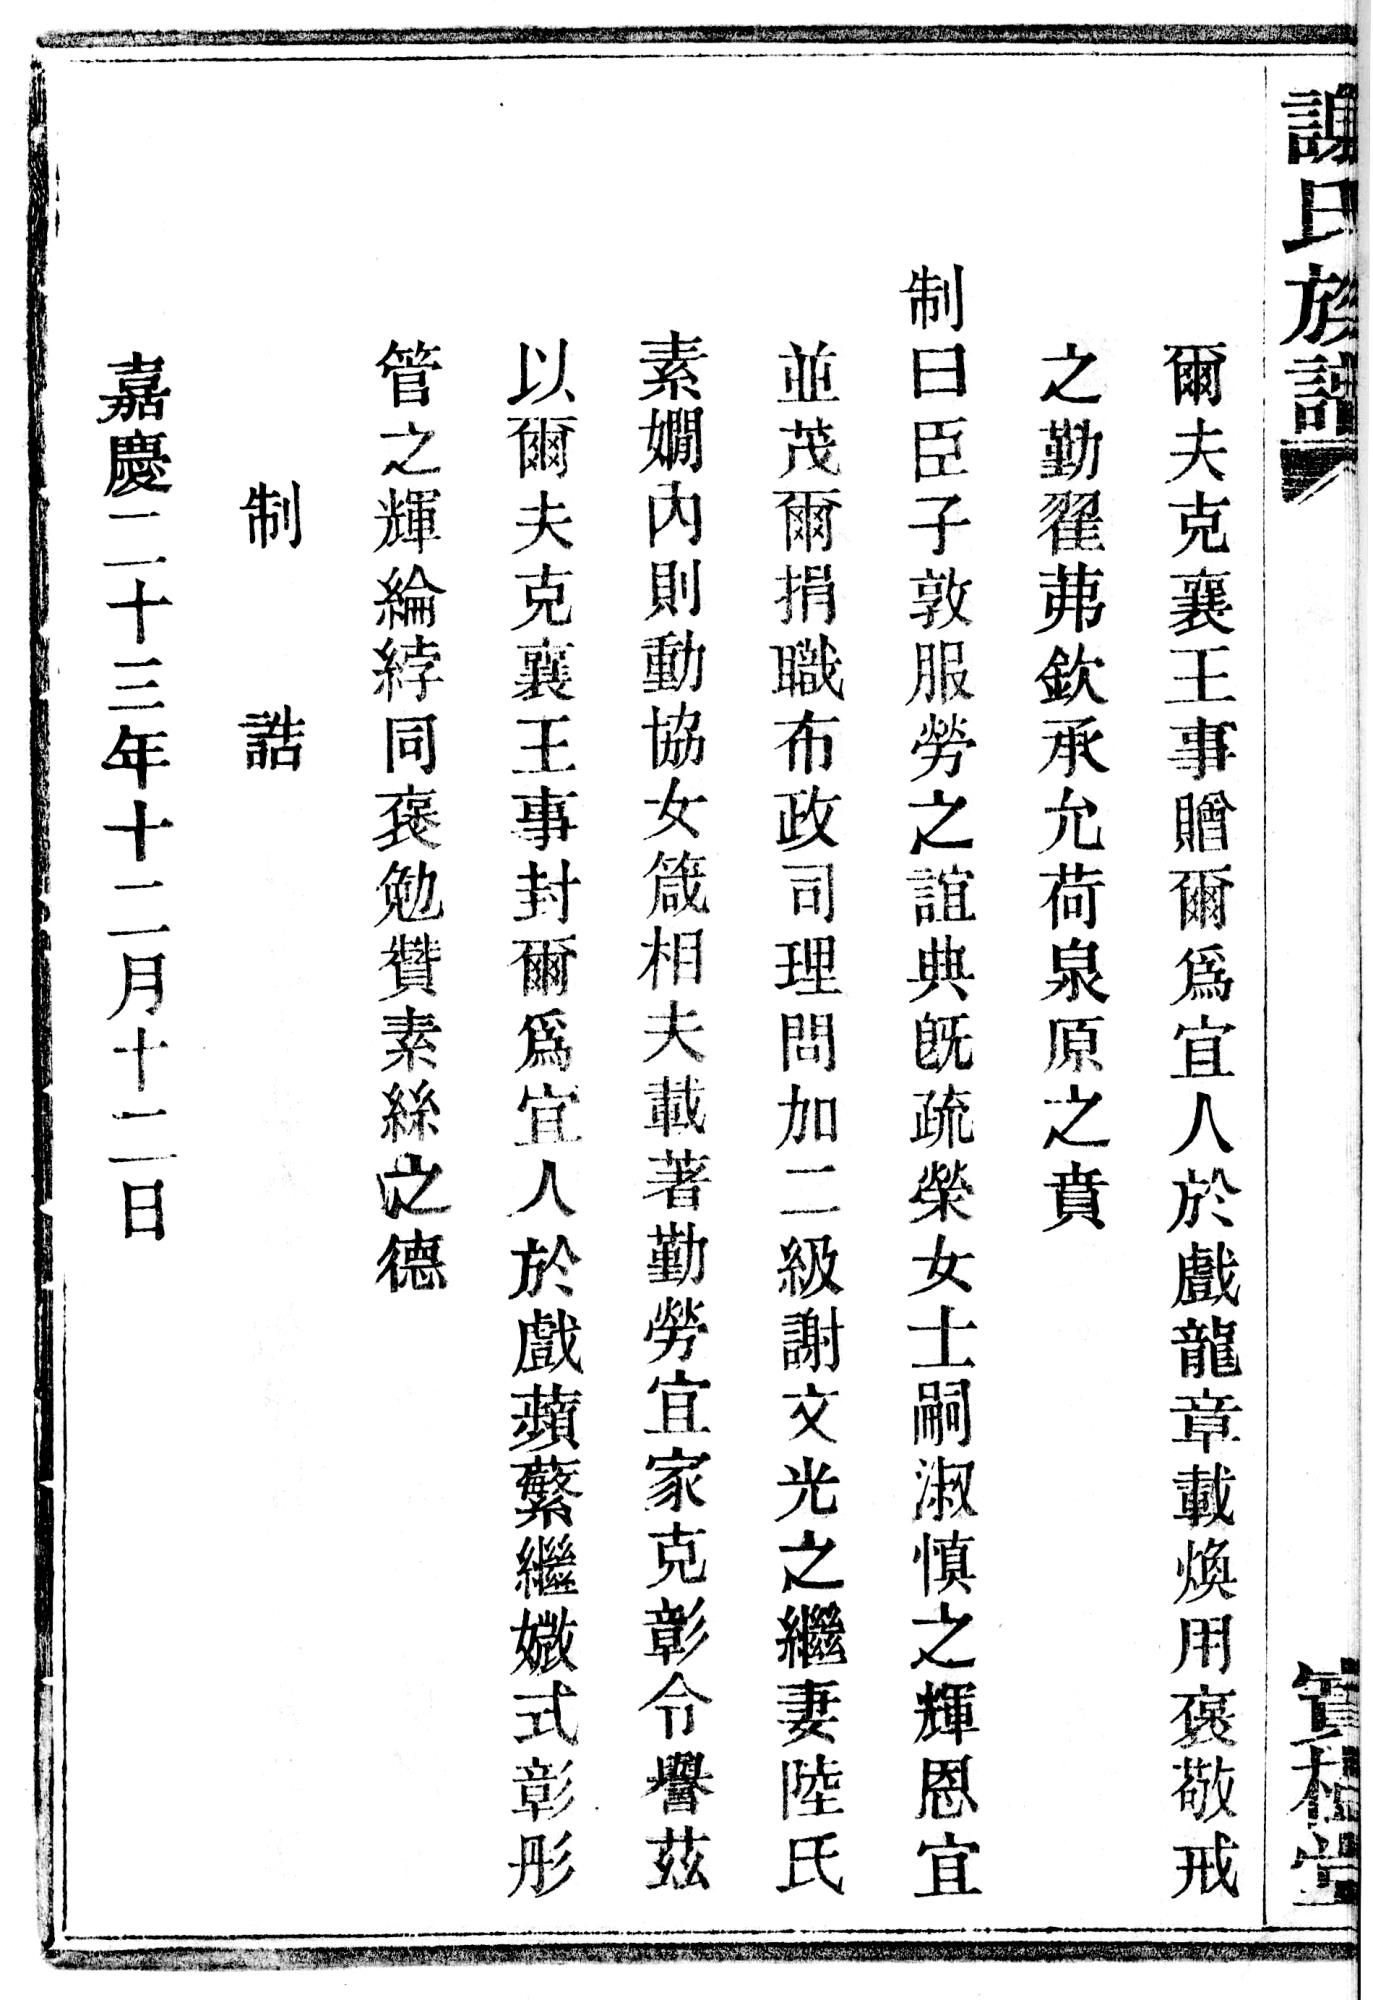 謝氏族譜
寶樹堂
爾夫克襄王事贈爾爲宜人於戲龍章載煥用褒敬戒
之勤翟茀欽承允荷泉原之賁
制曰臣子敦服勞之誼典旣疏榮女士嗣淑慎之輝恩宜
並茂爾捐職布政司理問加二級謝文光之繼妻陸氏
素嫻內則動協女箴相夫載著勤勞宜家克彰令譽茲
以爾夫克襄王事封爾爲宜人於戲蘋蘩繼媺式彰彤
管之輝綸綍同褒勉贊素絲之德
制誥
嘉慶二十三年十二月十二日